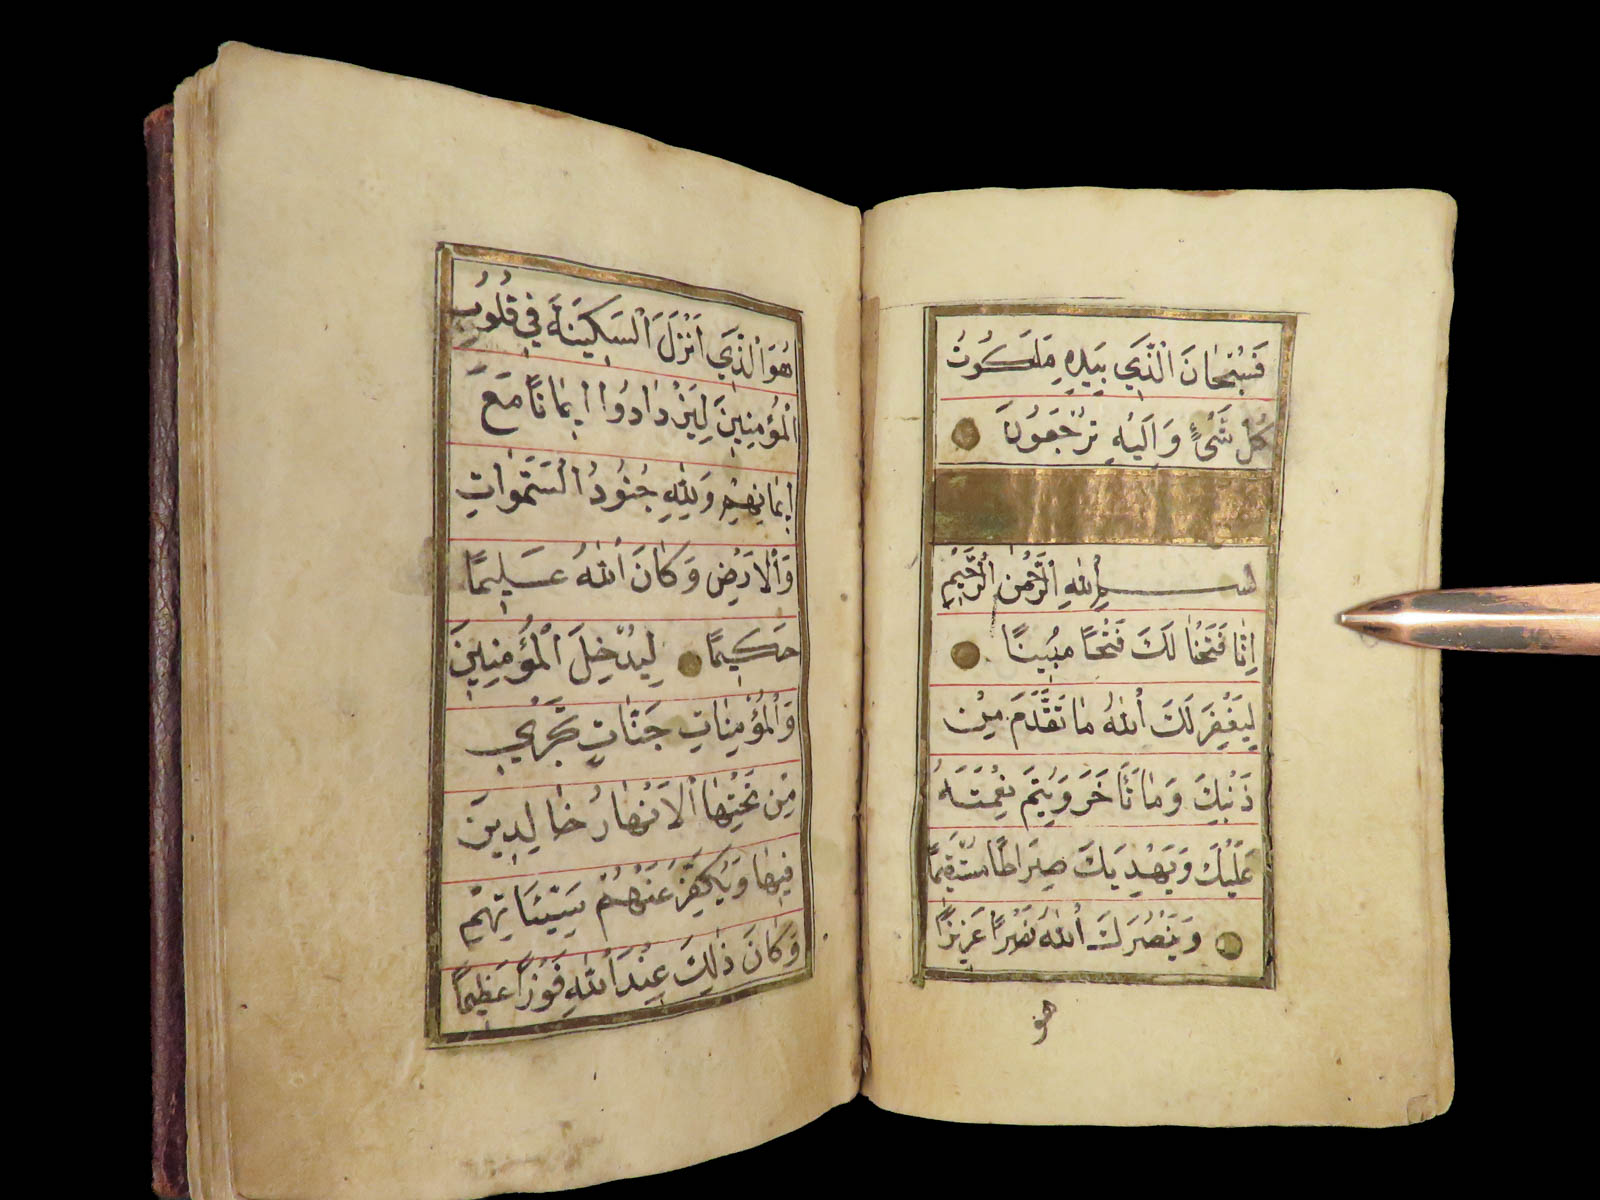 فَسُبْحَانَ الَّذَي بِيَدِهِ مَلَكُوتُ
كُلِّ شَىْءٍ وَاِلَيْهِ تُرْجَعُونَ
بسم اللهِ الرَّحْمٰنِ الرَّحِيْمِ
اِنَّا فَتَحْنَا لَكَ فَتْحًا مُبِينًا
لِيَغْفِرَ لَكَ اللهُ مَا تَقَدَّمَ مِنْ
ذَنْبِكَ وَمَا تَأَخَّرَ وَيُتِمَّ نِعْمَتَهُ
عَلَيْكَ وَيَهْدِيَكَ صِرَاطًا مُسْتَقِيمًا
وَيَنْصُرَكَ اللهُ نَصْرًا عَزِيزًا
هو
هُوَ الَّذَي اَنْزَلَ السَّكِينَةَ فِي قُلُوبِ
الْمُؤْمِنِينَ لِيَزْدَادُوا اِيمَانًا مَعَ
اِيمَانِهِمْ وَلِلّٰهِ جُنُودُ السَّمٰوَاتِ
وَالْاَرْضِ وَكَانَ اللهُ عَلِيمًا
حَكِيمًا لِيُدْخِلَ الْمُؤْمِنِينَ
وَالْمُؤْمِنَاتِ جَنَّاتٍ تَجْرِي
مِنْ تَحْتِهَا الْاَنْهَارُ خَالِدِينَ
فِيهَا وَيُكَفِّرَ عَنْهُمْ سَيِّئَاتِهِمْ
وَكَانَ ذٰلِكَ عِنْدَ اللهِ فَوْزًا عَظِيمًا